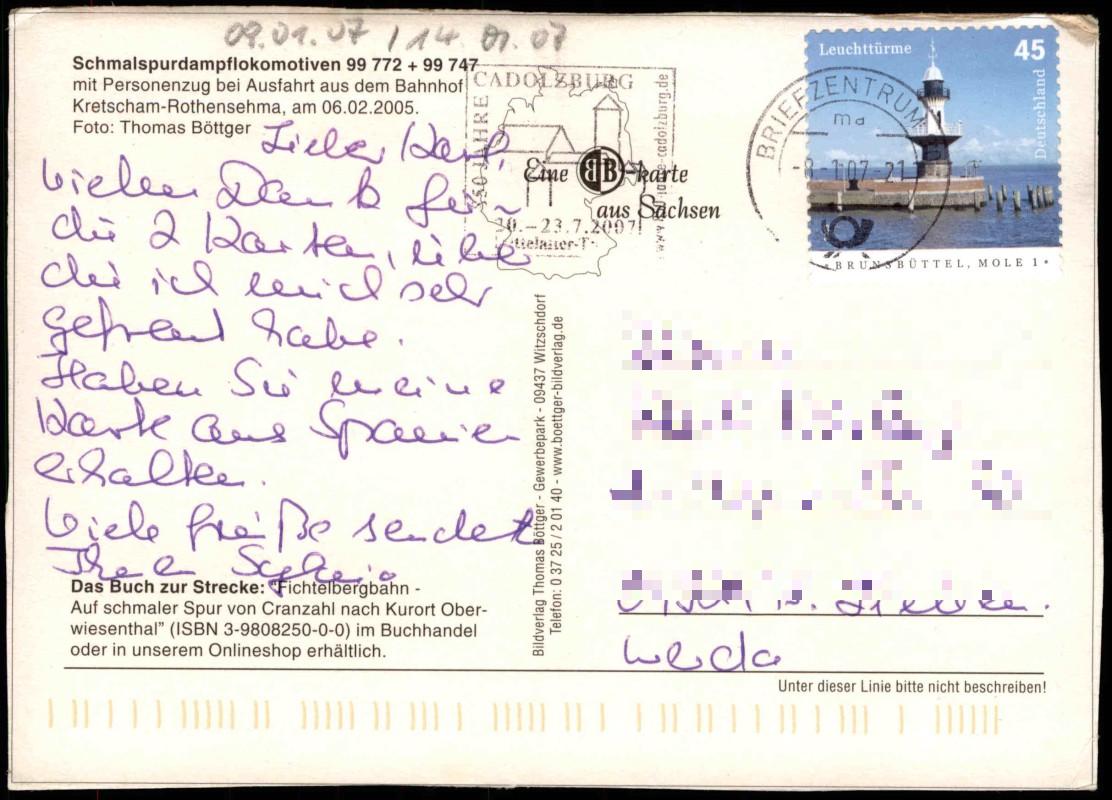 09.01.07 / 14.01.07
Schmalspurdampflokomotiven 99 772 + 99 747
mit Personenzug bei Ausfahrt aus dem Bahnhof
Kretscham-Rothensehma, am 06.02.2005.
Foto: Thomas Böttger
Lieber
vielen Dank für
die 2 Karten, über
die ich mich sehr
gefreut habe.
Haben Sie meine
Karte aus Spanien
erhalten.
Viele Grüße sendet
Ihnen
Das Buch zur Strecke: "Fichtelbergbahn -
Auf schmaler Spur von Cranzahl nach Kurort Ober-
wiesenthal" (ISBN 3-9808250-0-0) im Buchhandel
oder in unserem Onlineshop erhältlich.
CADOLZBURG
850 JAHRE
20.–23.7.2007
www.850-jahre-cadolzburg.de
Eine BB-karte
aus Sachsen
Bildverlag Thomas Böttger - Gewerbepark - 09437 Witzschdorf
Telefon: 0 37 25 / 2 01 40 - www.boettger-bildverlag.de
BRIEFZENTRUM
ma
-8.1.07-21
Leuchttürme
45
Deutschland
BRUNSBÜTTEL, MOLE 1
Werda
Unter dieser Linie bitte nicht beschreiben!